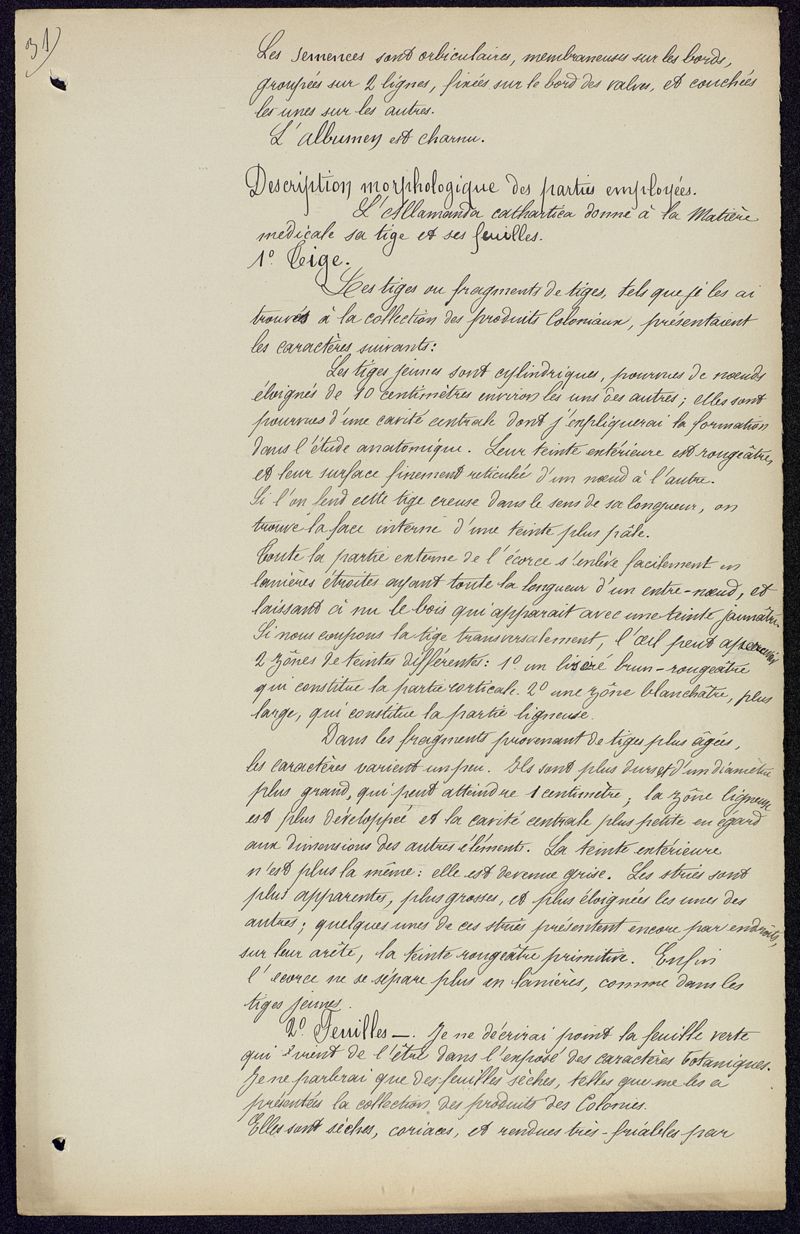 31)
Les semences sont orbiculaires, membraneuses sur les bords,
groupées sur 2 lignes, fixées sur le bord des valves, et couchées
les unes sur les autres.
L'albumen est charnu.
Description morphologique des parties employées.
L'Allamanda cathartica donne à la Matière
médicale sa tige et ses feuilles.
1º Tige.
Les tiges ou fragments de tiges, tels que je les ai
trouvés à la collection des produits Coloniaux, présentaient
les caractères suivants:
Les tiges jeunes sont cylindriques, pourvues de nœuds
éloignés de 10 centimètres environ les uns des autres; elles sont
pourvues d'une cavité centrale dont j'expliquerai la formation
dans l'étude anatomique. Leur teinte extérieure est rougeâtre,
et leur surface finement reticulée d'un nœud à l'autre.
Si l'on fend cette tige creuse dans le sens de sa longueur, on
trouve la face interne d'une teinte plus pâle.
Toute la partie externe de l'écorce s'enlève facilement en
lanières étroites ayant toute la longueur d'un entre-nœud, et
laissant à nu le bois qui apparait avec une teinte jaunâtre.
Si nous coupons la tige transversalement, l'œil peut apercevoir
2 zônes de teintes différentes: 1º un liseré brun-rougeâtre
qui constitue la partie corticale. 2º une zône blanchâtre, plus
large, qui constitue la partie ligneuse.
Dans les fragments provenant de tiges plus âgées,
les caractères varient un peu. Ils sont plus durs et d'un diamètre
plus grand, qui peut atteindre 1 centimètre; la zône ligneuse
est plus développée et la cavité centrale plus petite en égard
aux dimensions des autres éléments. La teinte extérieure
n'est plus la même: elle est devenue grise. Les stries sont
plus apparentes, plus grosses, et plus éloignées les unes des
autres; quelques unes de ces stries présentent encore par endroits,
sur leur arête, la teinte rougeâtre primitive. Enfin
l'écorce ne se sépare plus en lanières, comme dans les
tiges jeunes.
2º. Feuilles —. Je ne décrirai point la feuille verte
qui vient de l'être dans l'exposé des caractères botaniques.
Je ne parlerai que des feuilles sèches, telles que me les a
présentées la collection des produits des Colonies.
Elles sont sèches, coriaces, et rendues très-friables par